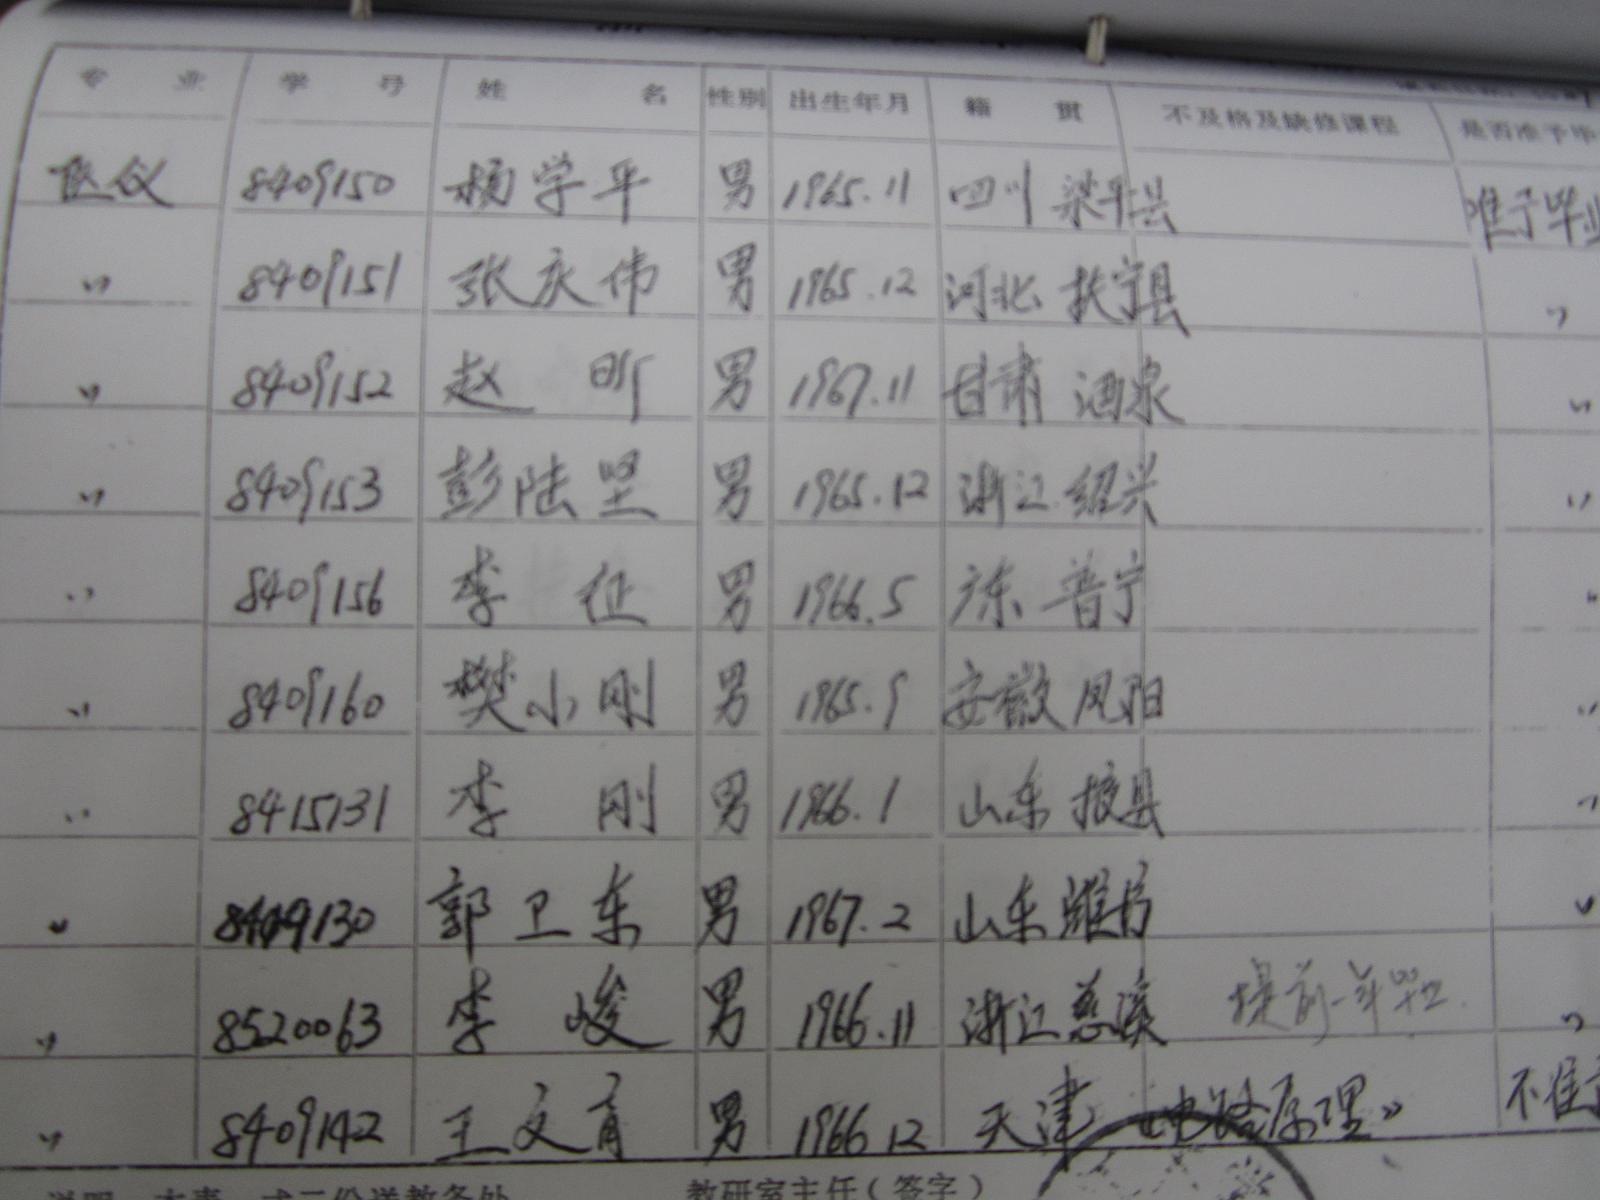 专 业 学 号 姓 名 性别 出生年月 籍 贯 不及格及缺修课程 是否准予毕
医仪 8409150 杨学平 男 1965.11 四川 梁平县 准予毕业
〃 8409151 张庆伟 男 1965.12 河北 抚宁县 〃
〃 8409152 赵 昕 男 1967.11 甘肃 酒泉 〃
〃 8409153 彭陆坚 男 1965.12 浙江 绍兴 〃
〃 8409156 李 征 男 1966.5 广东 普宁 〃
〃 8409160 樊小刚 男 1965.9 安徽 凤阳 〃
〃 8415131 李 刚 男 1966.1 山东 掖县 〃
〃 8409130 郭卫东 男 1967.2 山东 潍坊 〃
〃 8520063 李 峻 男 1966.11 浙江 慈溪 提前一年毕业. 〃
〃 8409142 王文育 男 1966.12 天津 《电路原理》 不准予
教研室主任(签字)